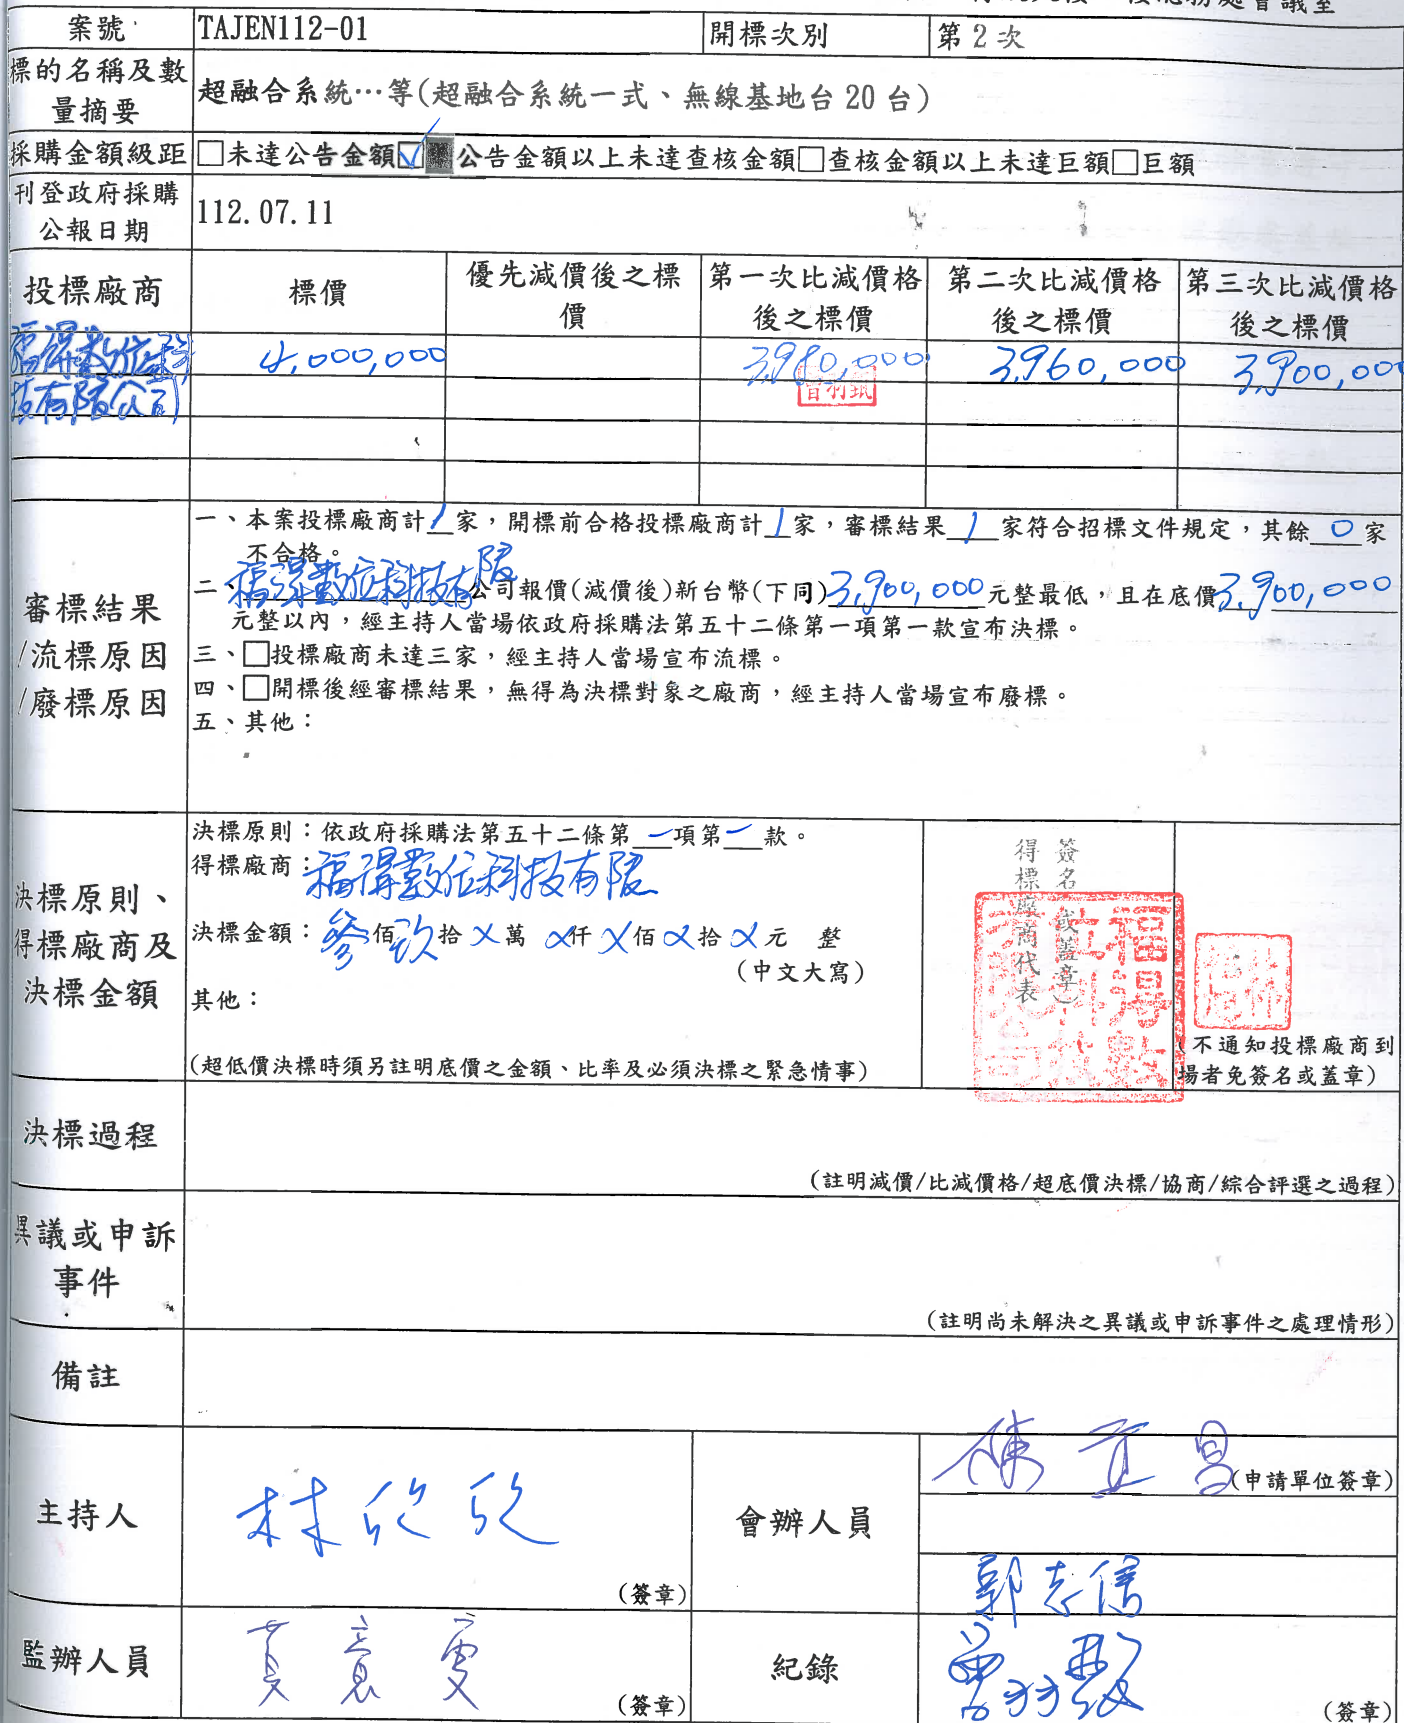 總務處會議室
案號 TAJEN112-01 開標次別 第 2 次
標的名稱及數量摘要 超融合系統…等(超融合系統一式、無線基地台 20 台)
採購金額級距 □未達公告金額☑公告金額以上未達查核金額□查核金額以上未達巨額□巨額
刊登政府採購公報日期 112.07.11
投標廠商 標價 優先減價後之標價 第一次比減價格後之標價 第二次比減價格後之標價 第三次比減價格後之標價
福得數位科技有限公司 4,000,000 3,980,000 3,960,000 3,900,000
審標結果/流標原因/廢標原因
一、本案投標廠商計1家，開標前合格投標廠商計1家，審標結果1家符合招標文件規定，其餘0家
不合格。
二、福得數位科技有限公司報價(減價後)新台幣(下同)3,900,000元整最低，且在底價3,900,000
元整以內，經主持人當場依政府採購法第五十二條第一項第一款宣布決標。
三、□投標廠商未達三家，經主持人當場宣布流標。
四、□開標後經審標結果，無得為決標對象之廠商，經主持人當場宣布廢標。
五、其他：
決標原則、得標廠商及決標金額
決標原則：依政府採購法第五十二條第一項第一款。
得標廠商：福得數位科技有限
決標金額：參佰玖拾X萬X仟X佰X拾X元 整
(中文大寫)
其他：
(超低價決標時須另註明底價之金額、比率及必須決標之緊急情事)
得標廠商代表
簽名(或蓋章)
福得數位科技有限公司
(不通知投標廠商到
場者免簽名或蓋章)
決標過程
(註明減價/比減價格/超底價決標/協商/綜合評選之過程)
異議或申訴事件
(註明尚未解決之異議或申訴事件之處理情形)
備註
主持人 林欣欣 (簽章)
會辦人員 陳立昌 (申請單位簽章)
郭志信
監辦人員 (簽章)
紀錄 (簽章)